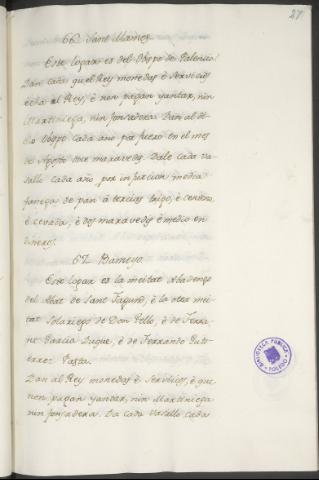 27
66. Sant Mames.
Este logar es del Obpo de Palencia
Dan cada que el Rey monedas è Servicios
echa al Rey, è non pagan yantar, nin
Martiniega, nin fonsadera. Dan al di-
cho Obpo cada año por fuero en el mes
de Agosto doce maravedis. Dale cada va-
sallo cada año por infurcion media
fanega de pan à tercias trigo, è centeno,
è cevada, è dos maravedis è medio en
dineros.
67. Barneyo.
Este logar es la meitat Abadengo
del Abat de Sant Fagund, è la otra mei-
tat Solariego de Don Tello, è de Ferra-
nt Garcia Duque, è de Ferrando Guti-
errez
Dan al Rey monedas è Servicios, è que
non pagan yantar, nin Martiniega
nin fonsadera. Da cada vasallo cada
BIBLIOTECA PUBLICA
TOLEDO